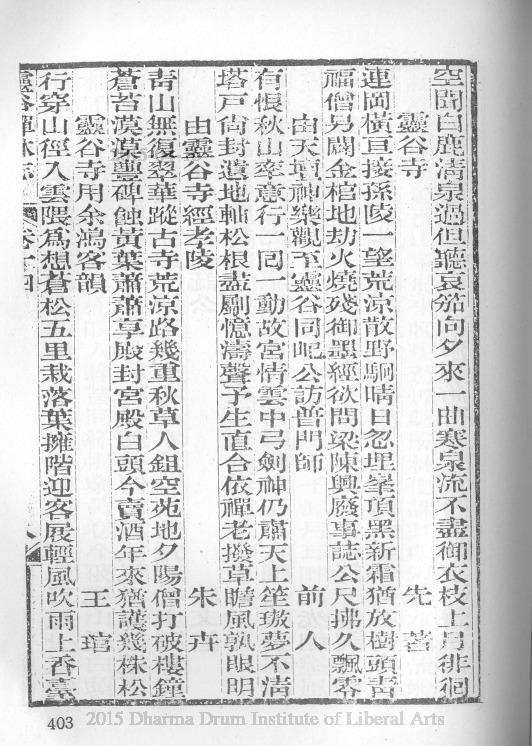 空問白鹿清泉過但聽哀笳向夕來一曲寒泉流不盡御衣枝上月徘徊
靈谷寺　先著
連岡橫亘接孫陵一望荒涼散野駉晴日忽埋峯頂黑新霜猶放樹頭青
福僧另闢金棺地劫火燒殘御墨經欲問梁陳興廢事誌公尺拂久飄零
由天壇神樂觀至靈谷同屺公訪普門師　前人
有恨秋山率意行一回一動故宮情雲中弓劍神仍肅天上笙璈夢不清
塔戸尙封遺地軸松根盡劚憶濤聲予生直合依禪老撥草瞻風孰眼明
由靈谷寺經孝陵　朱卉
靑山無復翠華蹤古寺荒涼路幾重秋草人鉏空苑地夕陽僧打破樓鐘
蒼苔漠漠豐碑蝕黃葉蕭蕭享殿封宮殿白頭今賣酒年來猶護幾株松
靈谷寺用余鴻客韻　王琯
行穿山徑入雲隈爲想蒼松五里栽落葉擁階迎客展輕風吹雨上香臺
靈谷禪林志　卷十四
403
2015 Dharma Drum Institute of Liberal Arts